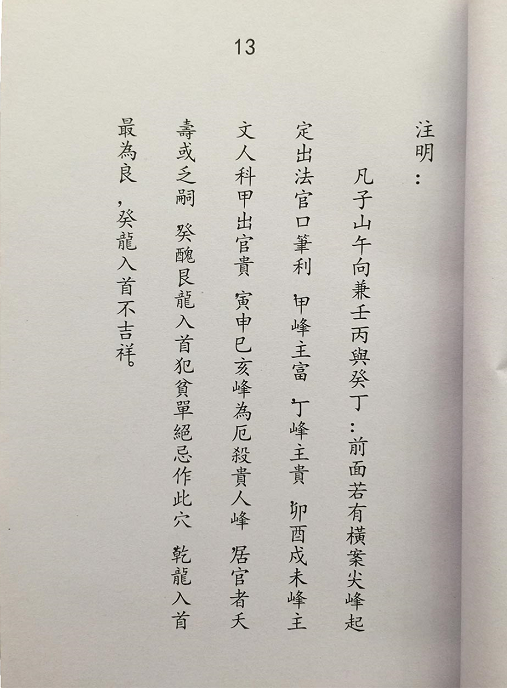 13
注明：
凡子山午向兼壬丙與癸丁：前面若有橫案尖峰起
定出法官口筆利，甲峰主富，丁峰主貴，卯酉戍未峰主
文人科甲出官貴，寅申巳亥峰為厄殺貴人峰，居官者夭
壽或乏嗣，癸醜艮龍入首犯貧單絕忌作此穴，乾龍入首
最為良，癸龍入首不吉祥。